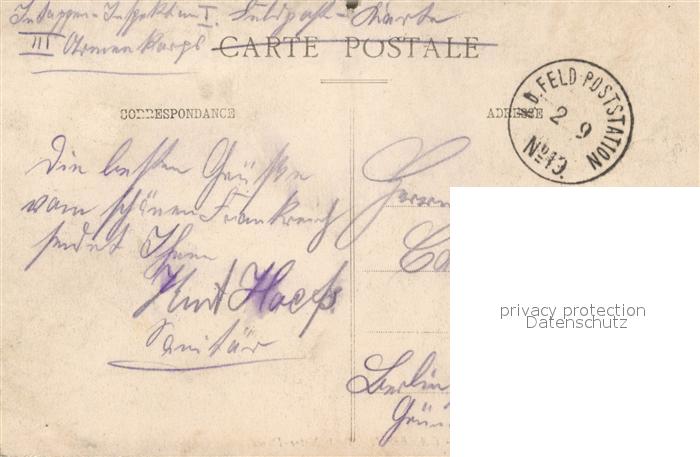 Etappen-Inspektion I. Feldpost-Karte
III Armeekorps
CARTE POSTALE
CORRESPONDANCE
ADRESSE
K.D. FELD-POSTSTATION
2 9
No 13.
Die besten Grüße
vom schönen Frankreich
sendet Ihnen
Kurt
Sanitär
Herrn
Berlin
privacy protection
Datenschutz